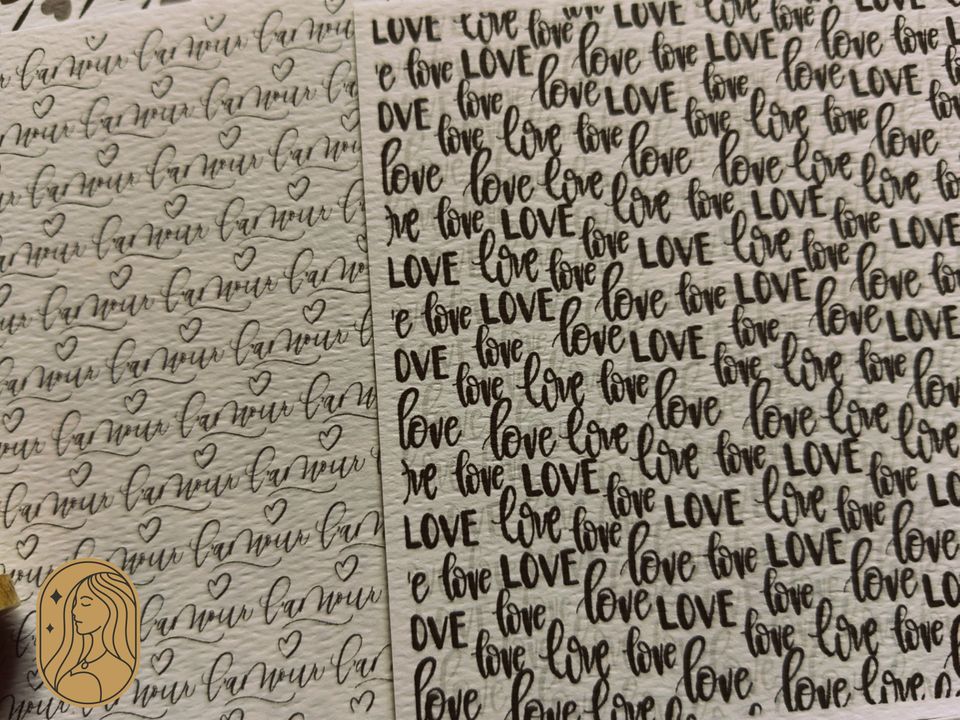 l'amour l'amour l'amour
l'amour l'amour l'amour
l'amour l'amour l'amour
l'amour l'amour l'amour
l'amour l'amour l'amour
l'amour l'amour l'amour
l'amour l'amour l'amour
l'amour l'amour l'amour
l'amour l'amour l'amour
l'amour l'amour
LOVE love love LOVE love love
love LOVE love love LOVE love love
OVE love love LOVE love love LOVE
love love love love love love
love love love love love love
ve love LOVE love love LOVE love
LOVE love love love LOVE love love LOVE
e love LOVE love love LOVE love
OVE love love LOVE love love LOVE
love love love love love love
love love love love love love
ve love LOVE love love LOVE love
LOVE love love love LOVE love love
e love LOVE love love LOVE love
OVE love love LOVE love love
love love love love love
love love love love love